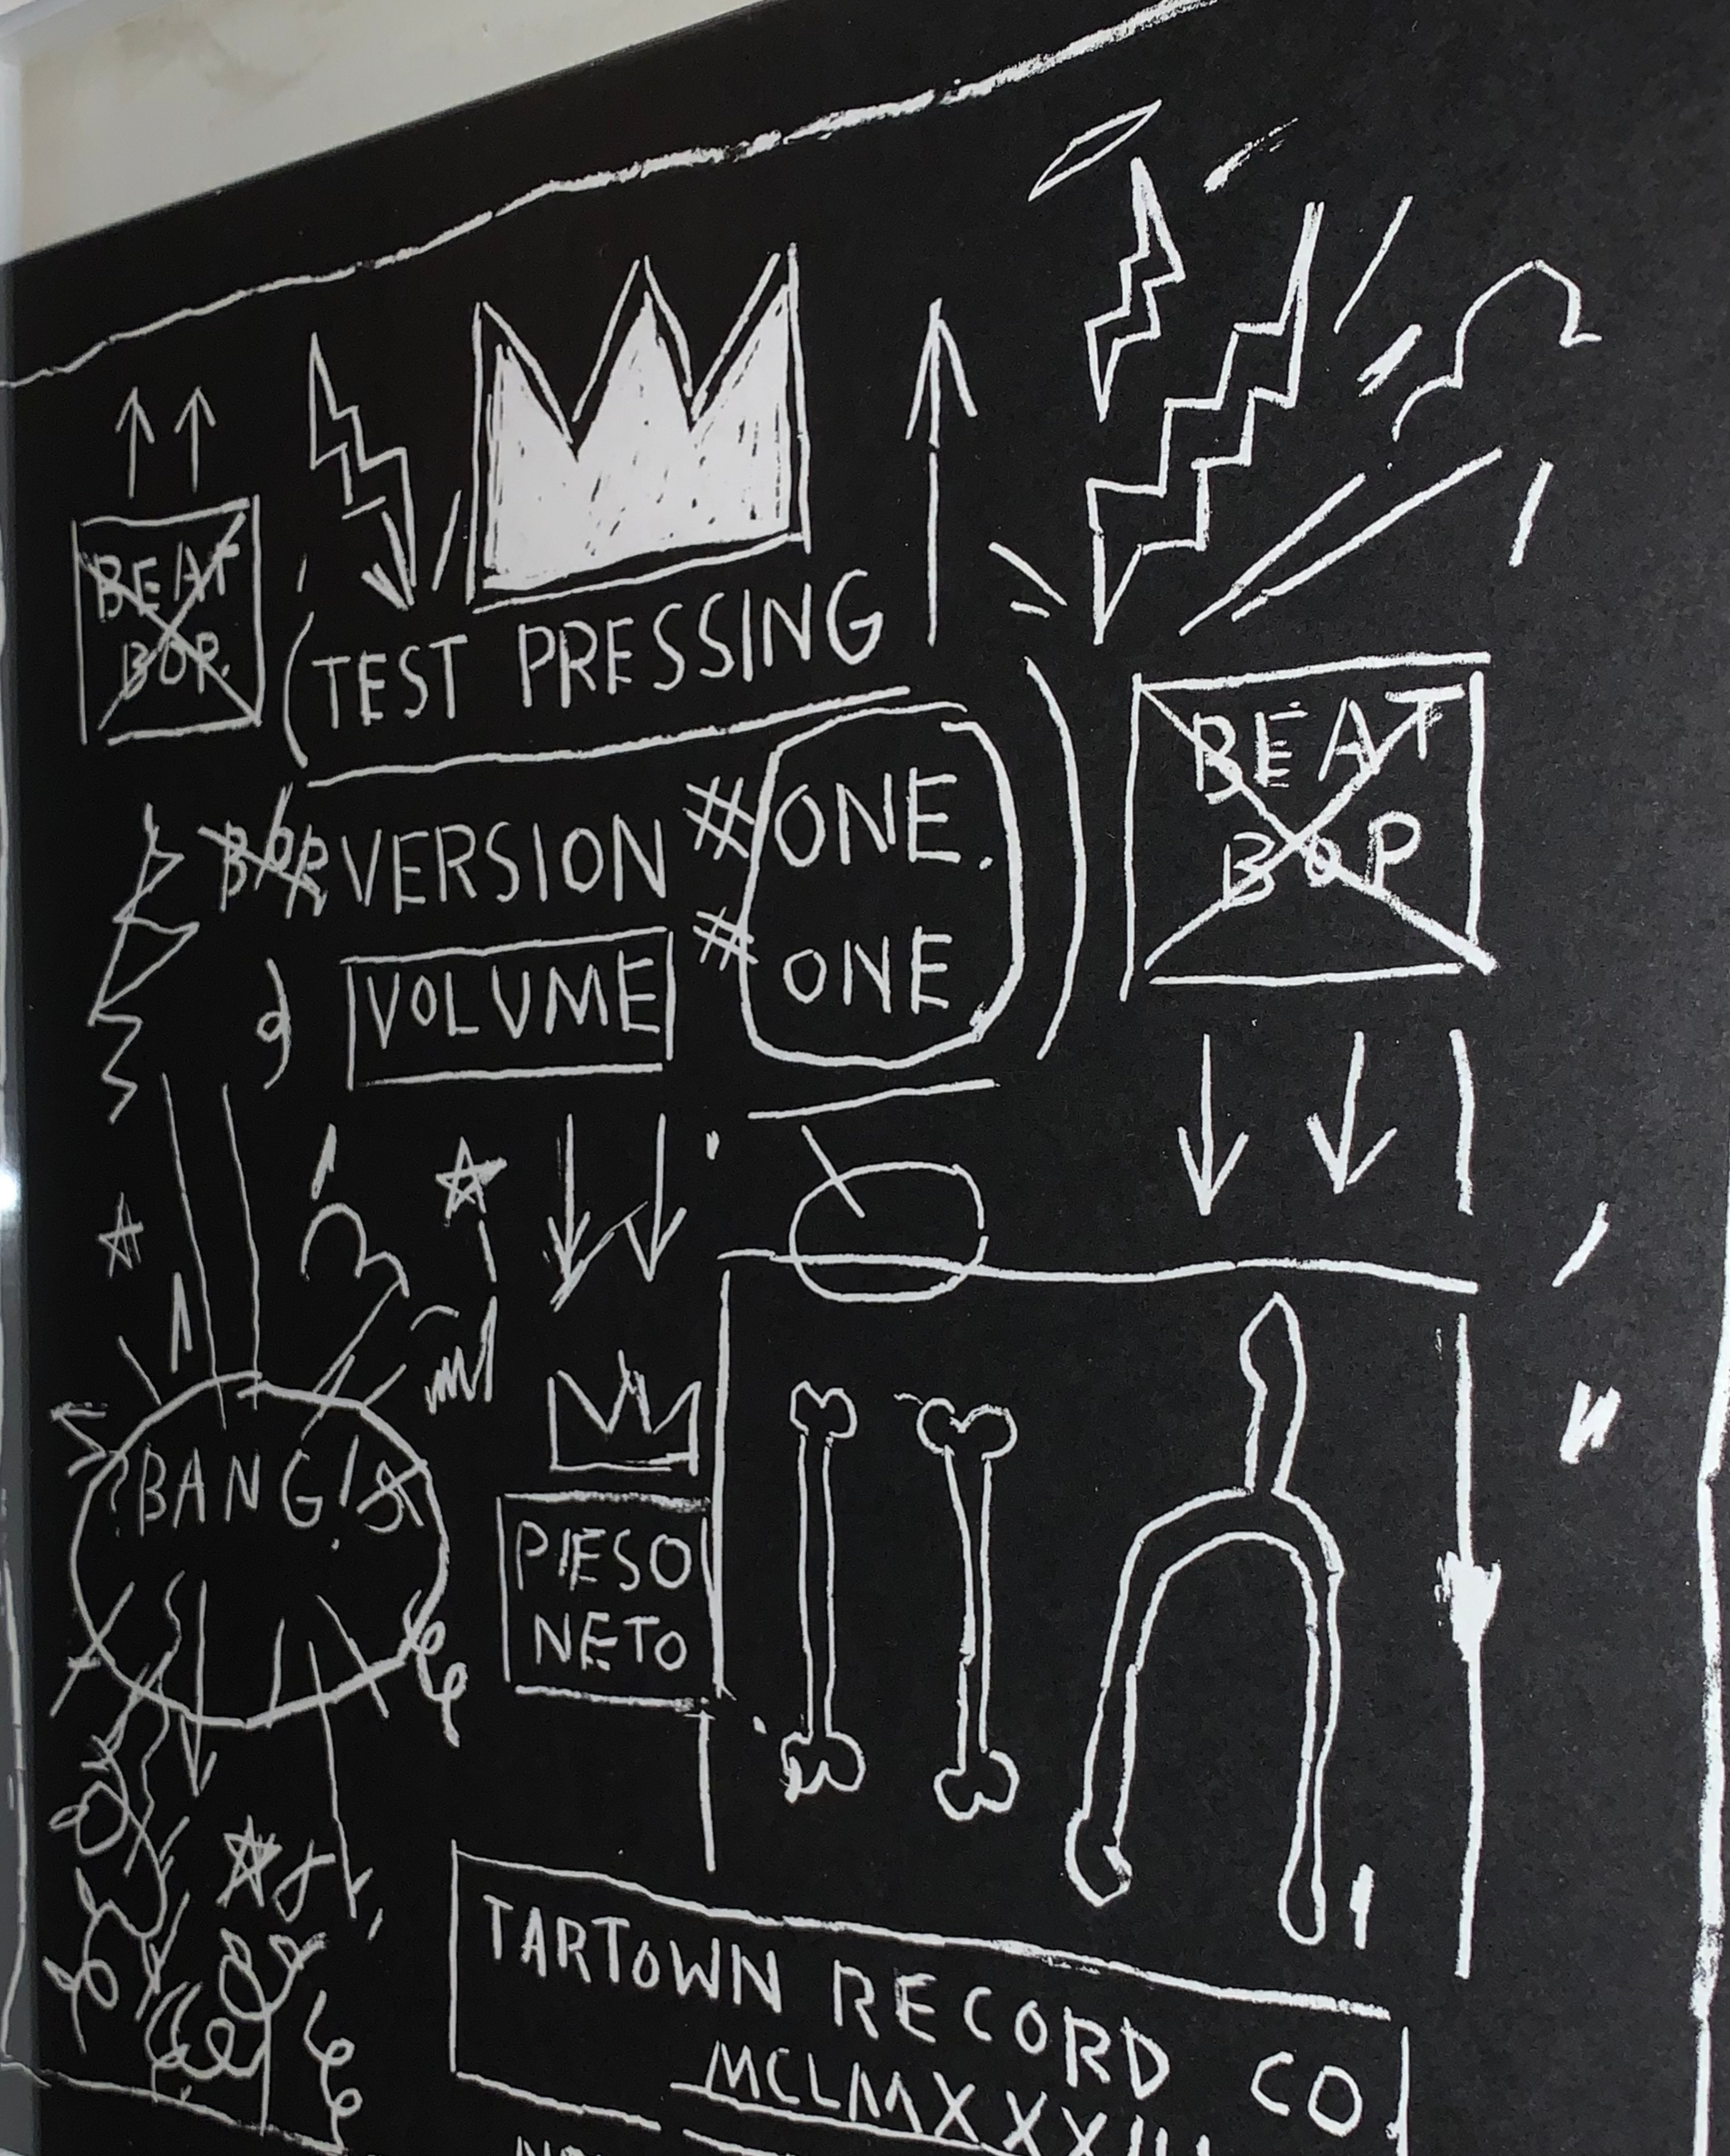 BEAT
BOP.
(TEST PRESSING
BOP VERSION # ONE.
VOLUME # ONE )
BEAT
BOP
?BANG!
PIESO
NETO
TARTOWN RECORD CO
MCLMXXXIII